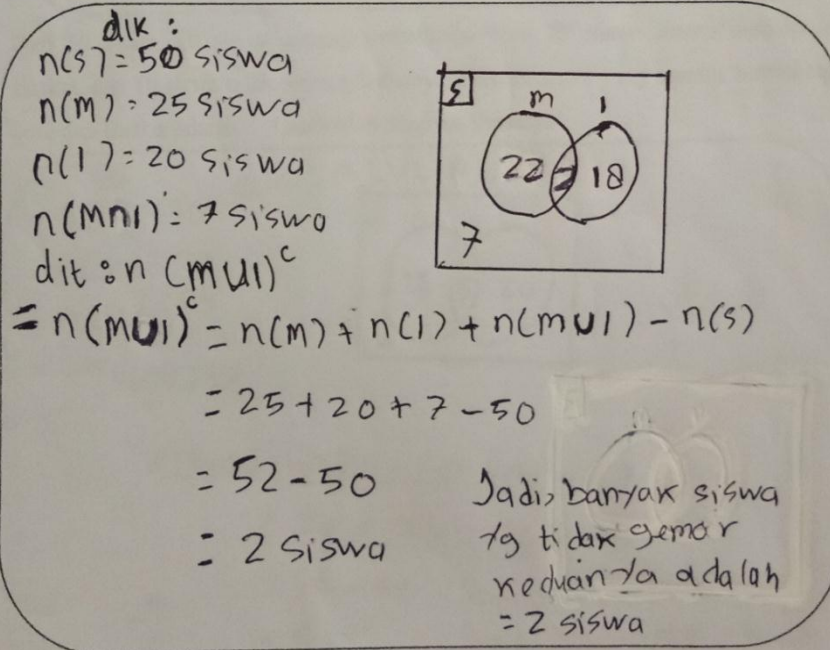 dik :
n(s) = 50 siswa
n(m) = 25 siswa
n(1) = 20 siswa
n(m∩1) = 7 siswa
dit : n (m∪1)ᶜ
= n(m∪1)ᶜ = n(m) + n(1) + n(m∪1) - n(s)
= 25 + 20 + 7 - 50
= 52 - 50
= 2 siswa
S
m 1
22 2 18
7
Jadi, banyak siswa
yg tidak gemar
keduanya adalah
= 2 siswa